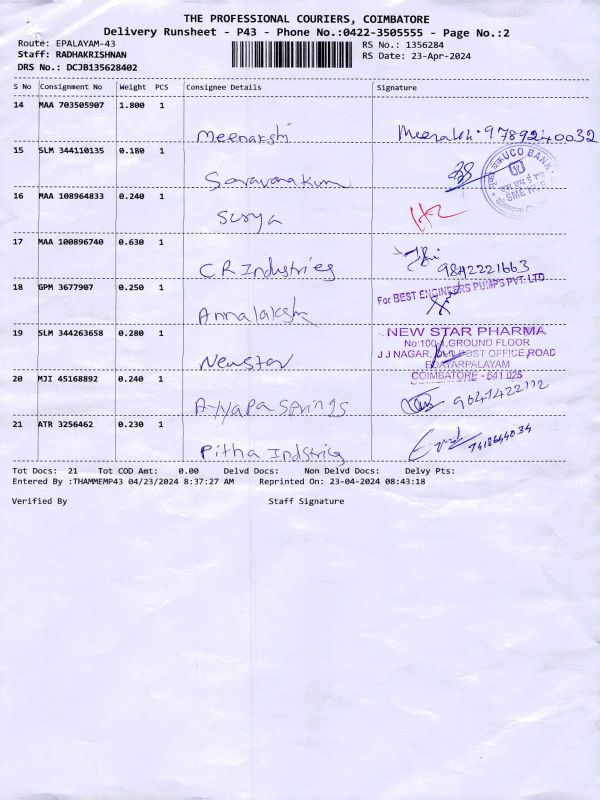 THE PROFESSIONAL COURIERS, COIMBATORE
Delivery Runsheet - P43 - Phone No.:0422-3505555 - Page No.:2
Route: EPALAYAM-43
RS No.: 1356284
Staff: RADHAKRISHNAN
RS Date: 23-Apr-2024
DRS No.: DCJB135628402
S No Consignment No Weight PCS Consignee Details Signature
14 MAA 703505907 1.800 1
Meenakshi 9789240032
15 SLM 344110135 0.180 1
UCO BANK
SME
Saravanakum
16 MAA 108964833 0.240 1
Surya
17 MAA 100896740 0.630 1
CR Industries 9842221663
18 GPM 3677907 0.250 1
For BEST ENGINEERS PUMPS PVT. LTD
Annalakshm
19 SLM 344263658 0.280 1
NEW STAR PHARMA
No:100-1, GROUND FLOOR
J J NAGAR, POST OFFICE ROAD
EDAYARPALAYAM
COIMBATORE - 641 025
Newstar
20 MJI 45168892 0.240 1
Ayyapa Springs
21 ATR 3256462 0.230 1
Pitha Indstries
Tot Docs: 21 Tot COD Amt: 0.00 Delvd Docs: Non Delvd Docs: Delvy Pts:
Entered By :THAMMEMP43 04/23/2024 8:37:27 AM Reprinted On: 23-04-2024 08:43:18
Verified By Staff Signature